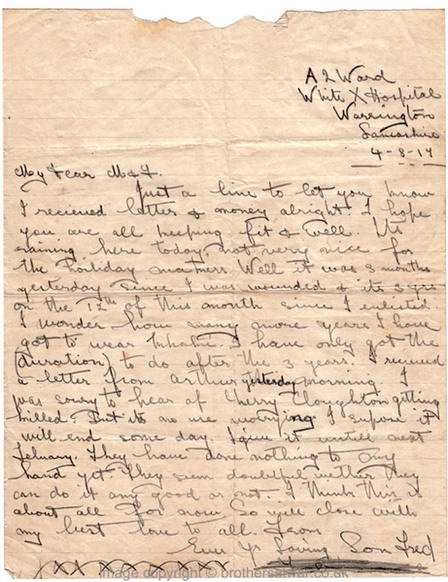 A 2 Ward
White X Hospital
Warrington
Lancashire
4-8-17
My Dear M & F.
Just a line to let you know
I recieved letter & money alright I hope
you are all keeping fit & well. Its
raining here today not very nice for
the Holiday makers Well it was 3 months
yesterday since I was wounded & its 3 yrs
on the 12th of this month since I enlisted
I wonder how many more years I have
got to wear khaki. I have only got the
(duration) to do after the 3 years. I recieved
a letter from Arthur yesterday morning. I
was sorry to hear of Cloughton getting
killed. But its no use worrying I supose it
will end some day. I give it untill next
Febuary. They have done nothing to my
hand yet. They seem doubtful wether they
can do it any good or not. I think this is
about all for now So will close with
my best love to all. From
Ever Yr Loving Son Fred
XXXXXXXXX
image copyright © brothersatwar.co.uk